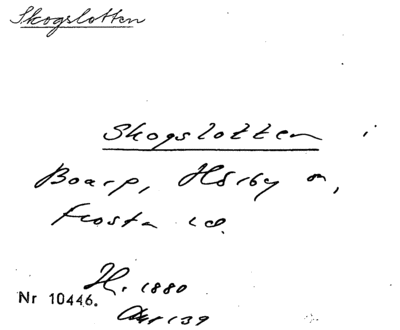 Skogslotten
Skogslotten i
Boarp, Hörby sn,
Frosta hd.
H. 1880
Nr 10446.
139